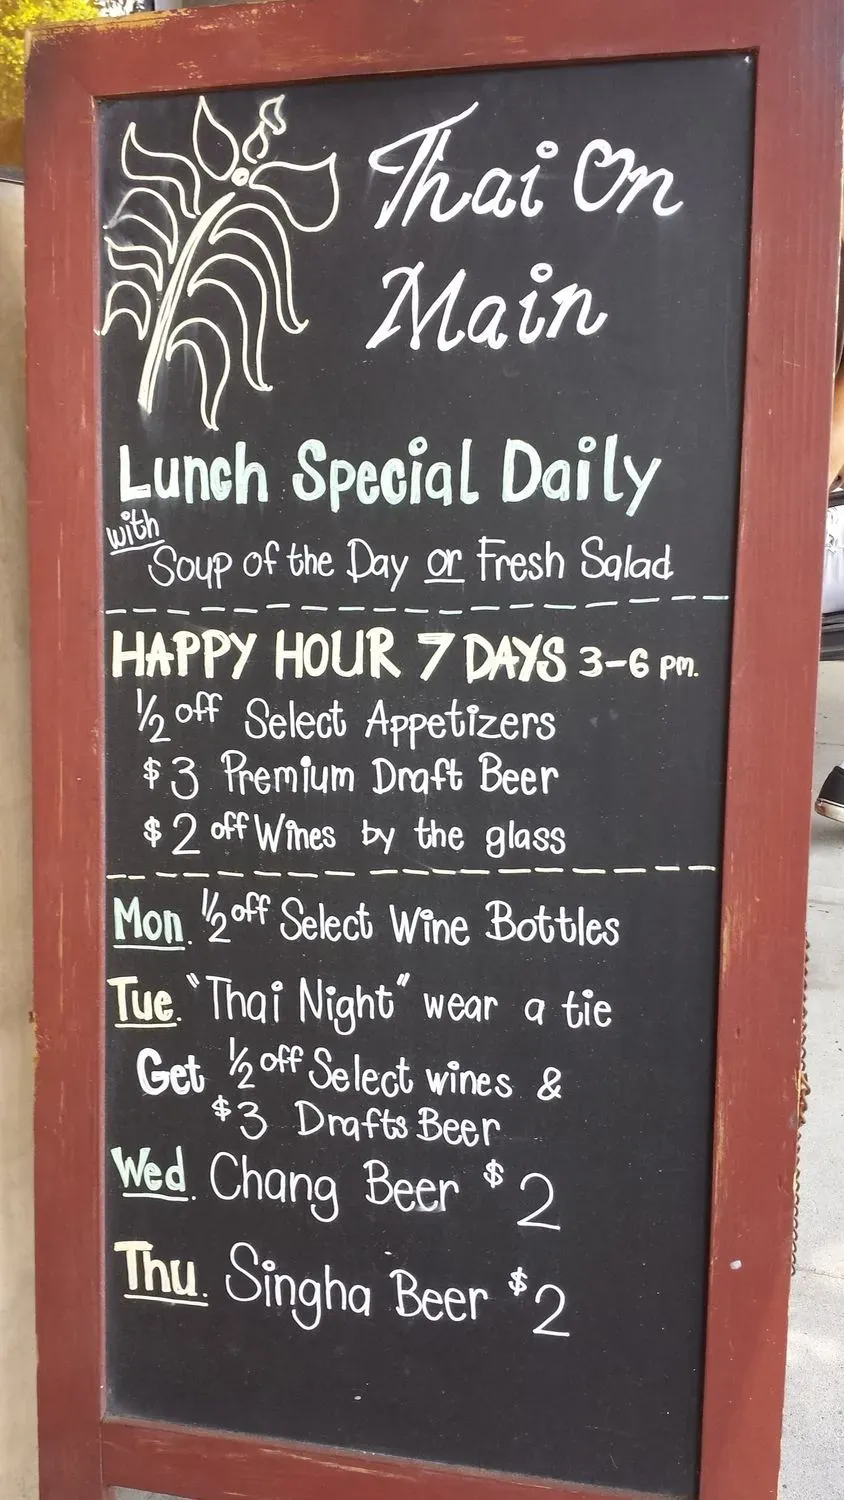 Thai On
Main
Lunch Special Daily
with
Soup of the Day or Fresh Salad
HAPPY HOUR 7 DAYS 3-6 pm.
1/2 off Select Appetizers
$3 Premium Draft Beer
$2 off Wines by the glass
Mon. 1/2 off Select Wine Bottles
Tue. "Thai Night" wear a tie
Get 1/2 off Select wines &
$3 Drafts Beer
Wed. Chang Beer $2
Thu. Singha Beer $2